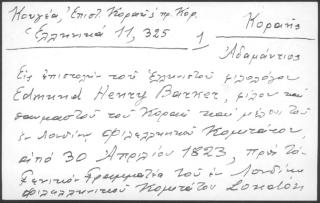 Κουγέα, Ἐπιστ. Κοραῆ πρ. Κορ.
Ἑλληνικά 11, 325
1
Κοραῆς
Ἀδαμάντιος
Εἰς ἐπιστολήν τοῦ ἑλληνιστοῦ φιλολόγου
Edmund Henry Barker, φίλου καί
θαυμαστοῦ τοῦ Κοραῆ καί μέλους τοῦ
ἐν Λονδίνῳ Φιλελληνικοῦ Κομιτάτου,
ἀπό 30 Ἀπριλίου 1823, πρός τόν
Γενικόν Γραμματέα τοῦ ἐν Λονδίνῳ
Φιλελληνικοῦ Κομιτάτου London